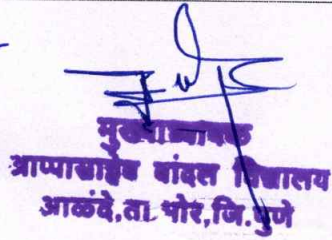 मुख्याध्यापक
आप्पासाहेब बांदल विद्यालय
आळंदे,ता. भोर,जि.पुणे